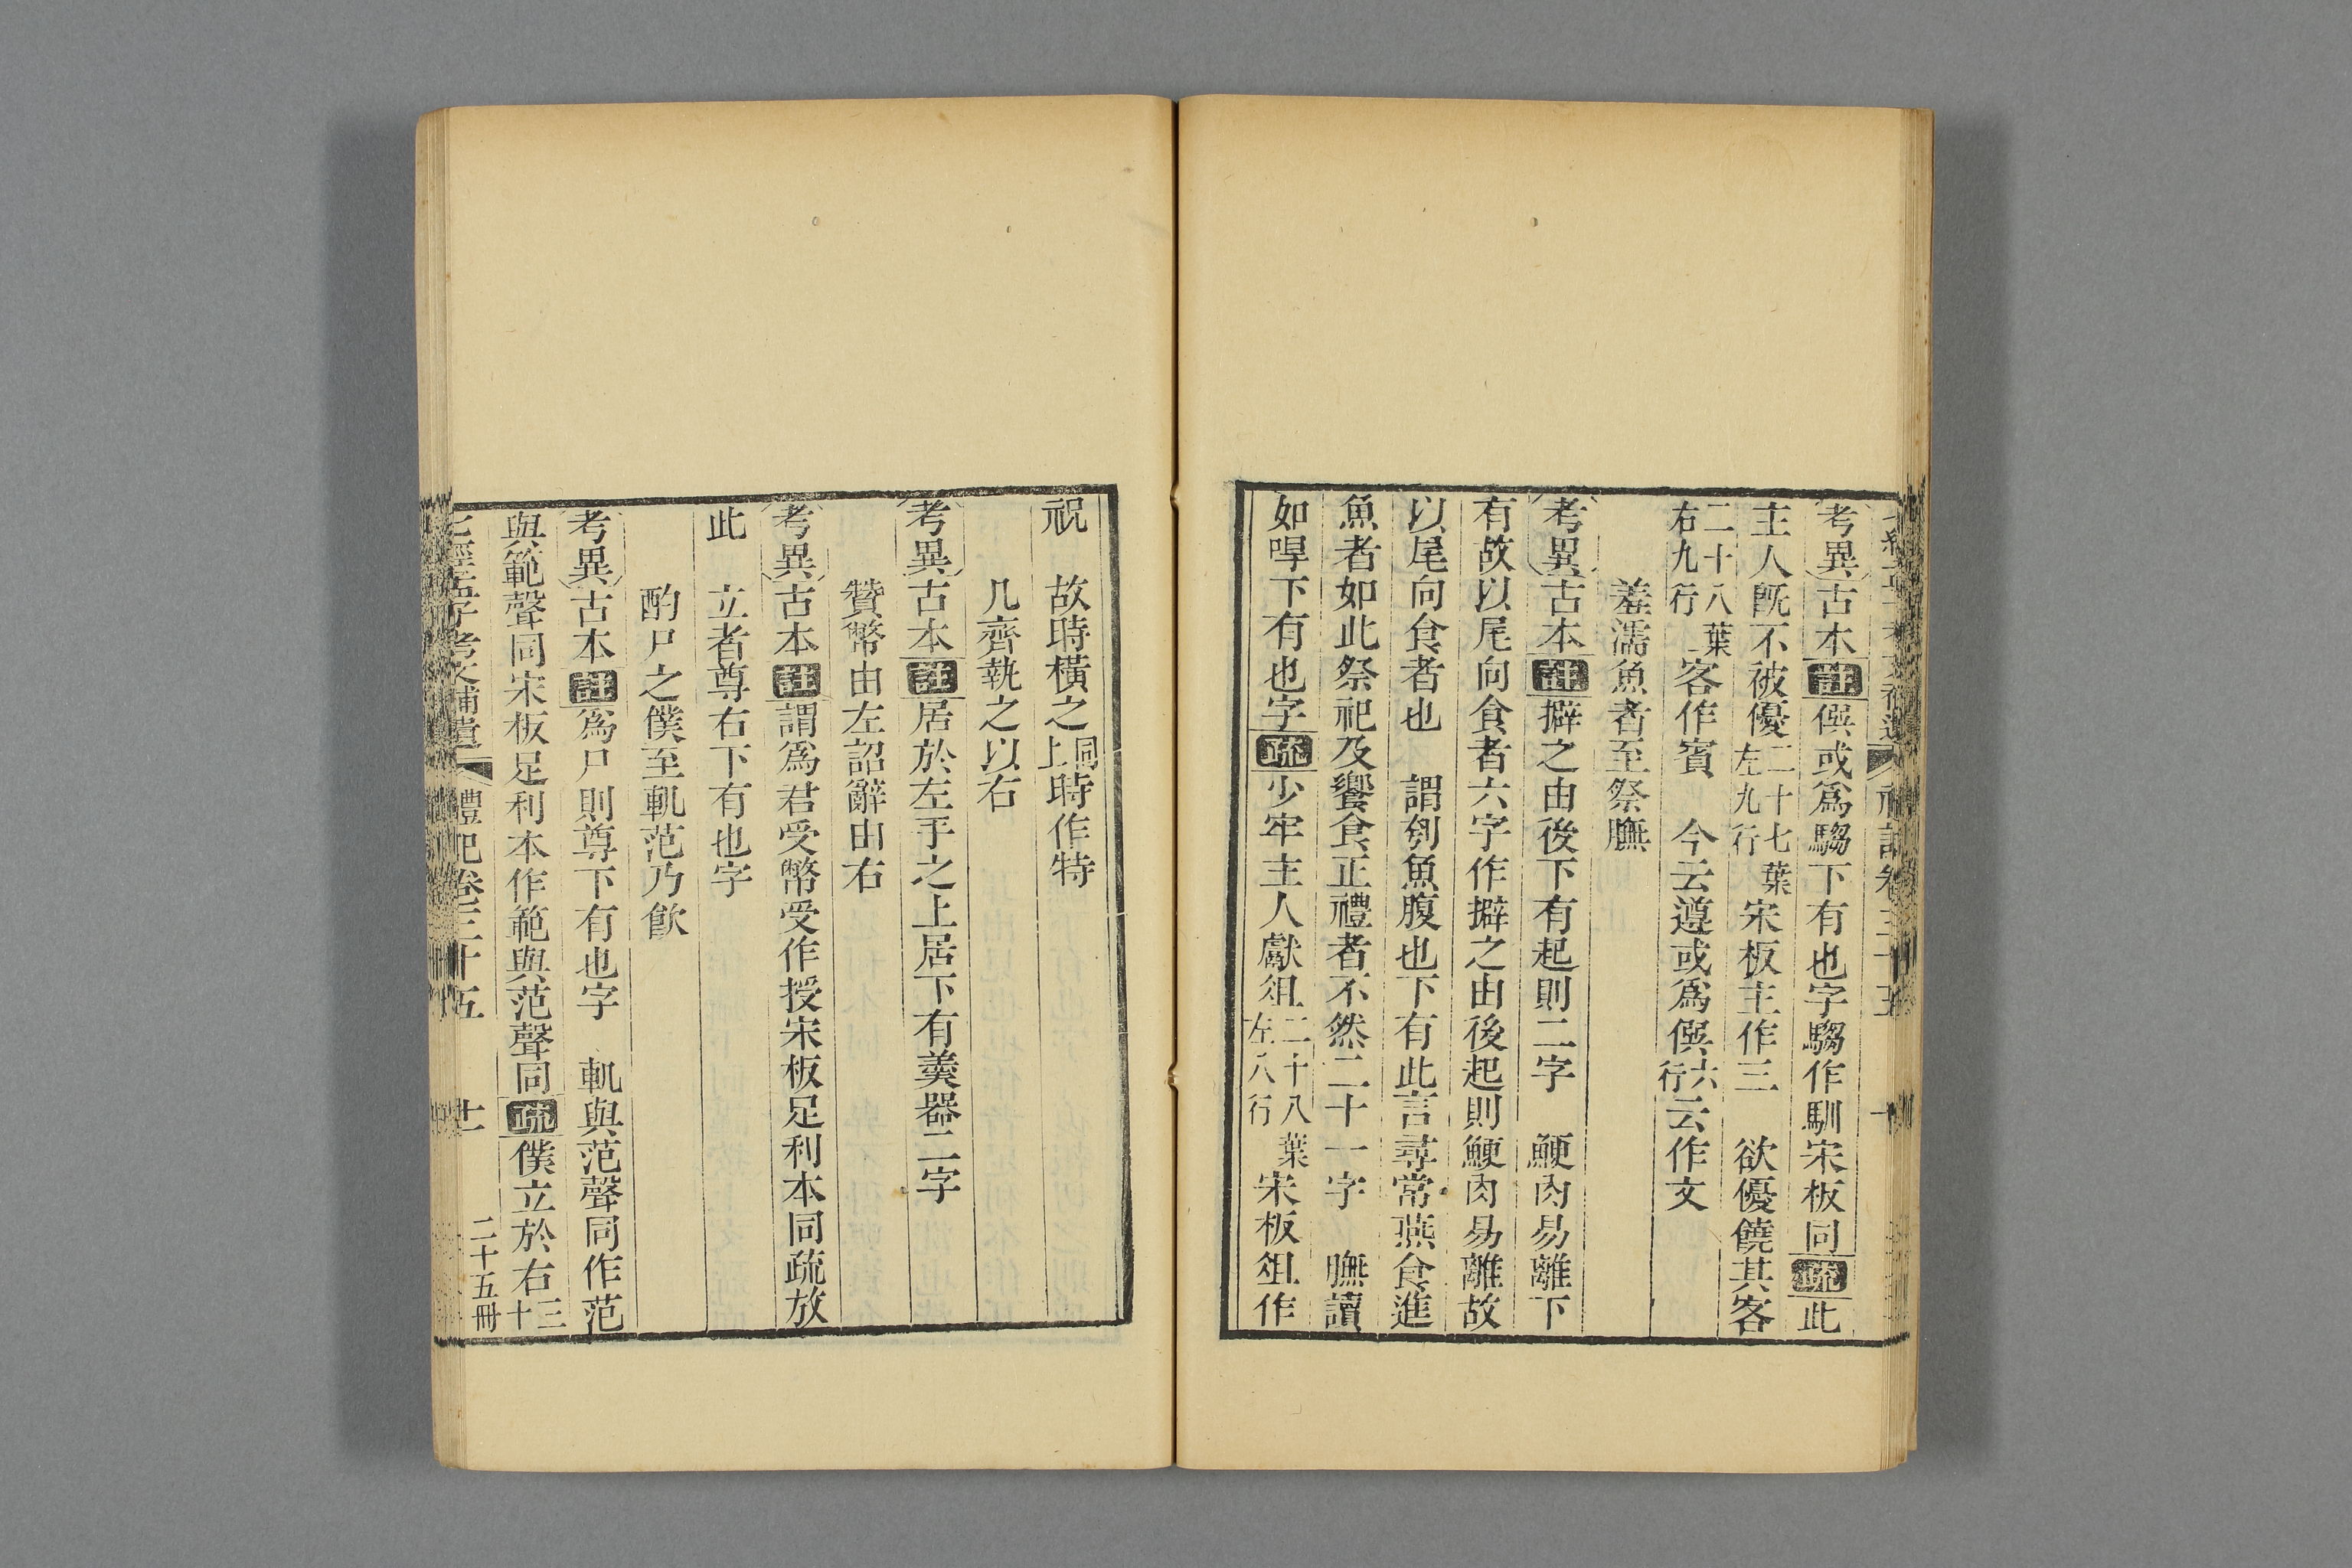 考異古本註僎或爲騶下有也字騶作馴宋板同疏此
主人旣不被優二十七葉左九行宋板主作三　欲優饒其客
二十八葉右九行客作賓　今云遵或爲僎六行云作文
羞濡魚者至祭膴
考異古本註擗之由後下有起則二字　鯁肉易離下
有故以尾向食者六字作擗之由後起則鯁肉易離故
以尾向食者也　謂刳魚腹也下有此言尋常燕食進
魚者如此祭祀及饗食正禮者不然二十一字　膴讀
如哻下有也字疏少牢主人獻俎二十八葉左八行宋板俎作
祝　故時橫之同上時作特
几齊執之以右
考異古本註居於左手之上居下有羹器二字
贊幣由左詔辭由右
考異古本註謂爲君受幣受作授宋板足利本同疏放
此　立者尊右下有也字
酌尸之僕至軌范乃飲
考異古本註爲尸則尊下有也字　軌與范聲同作范
與範聲同宋板足利本作範與范聲同疏僕立於右三十
七經孟子考文補遺　禮記卷三十五　十一　二十五冊